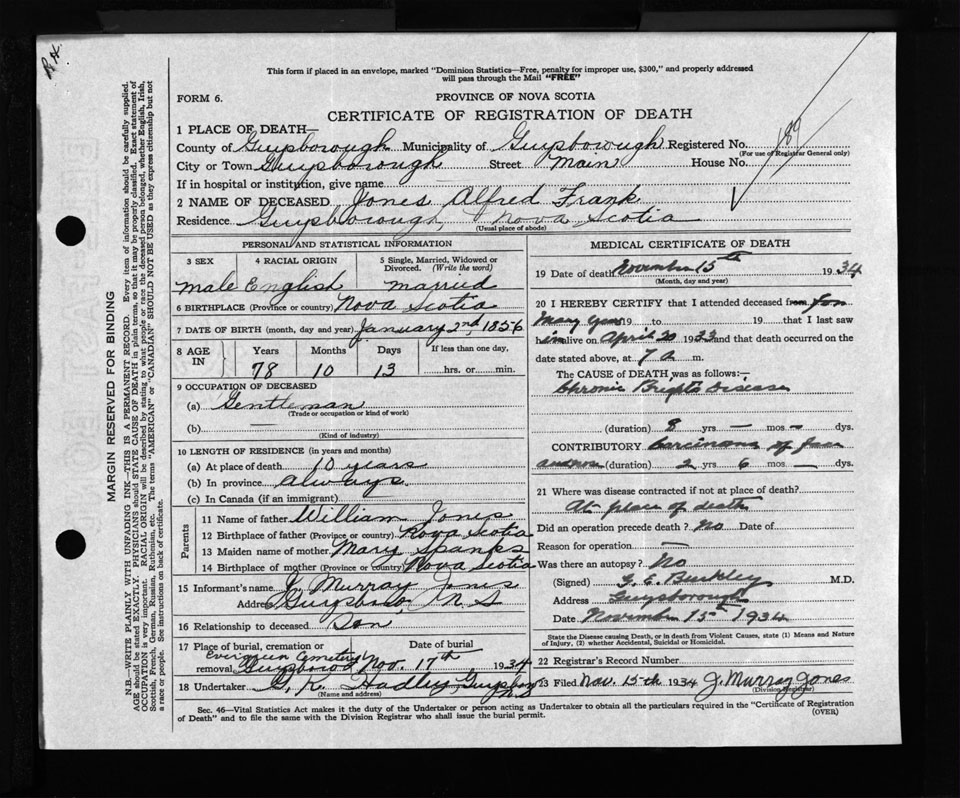 R.H.
This form if placed in an envelope, marked "Dominion Statistics—Free, penalty for improper use, $300," and properly addressed
will pass through the Mail "FREE"
FORM 6.
PROVINCE OF NOVA SCOTIA
CERTIFICATE OF REGISTRATION OF DEATH
189
1 PLACE OF DEATH—
County of Guysborough Municipality of Guysborough Registered No.
(For use of Registrar General only)
City or Town Guysborough Street Main House No.
If in hospital or institution, give name
2 NAME OF DECEASED Jones Alfred Frank
Residence Guysborough, Nova Scotia
(Usual place of abode)
PERSONAL AND STATISTICAL INFORMATION
3 SEX 4 RACIAL ORIGIN 5 Single, Married, Widowed or
Divorced. (Write the word)
Male English Married
6 BIRTHPLACE (Province or country) Nova Scotia
7 DATE OF BIRTH (month, day and year) January 2nd, 1856
8 AGE IN Years Months Days If less than one day,
78 10 13 hrs. or min.
9 OCCUPATION OF DECEASED
(a) Gentleman
(Trade or occupation or kind of work)
(b) —
(Kind of industry)
10 LENGTH OF RESIDENCE (in years and months)
(a) At place of death 10 years
(b) In province always.
(c) In Canada (if an immigrant) —
Parents
11 Name of father William Jones
12 Birthplace of father (Province or country) Nova Scotia
13 Maiden name of mother Mary Spanks
14 Birthplace of mother (Province or country) Nova Scotia
15 Informant's name J. Murray Jones
Address Guysboro N.S
16 Relationship to deceased Son
17 Place of burial, cremation or Date of burial
Evergreen Cemetery
removal Guysboro Nov. 17th 1934
18 Undertaker G. K. Hadley, Guysboro
NS
MEDICAL CERTIFICATE OF DEATH
19 Date of death November 15th 1934
(Month, day and year)
20 I HEREBY CERTIFY that I attended deceased from for
Many years 19 to 19 that I last saw
him alive on April 20 1933 and that death occurred on the
date stated above, at 7 a m.
The CAUSE of DEATH was as follows:—
Chronic Brights Disease
(duration) 8 yrs — mos — dys.
CONTRIBUTORY Carcinoma of face
(duration) 2 yrs 6 mos — dys.
21 Where was disease contracted if not at place of death?
At place of death
Did an operation precede death? No Date of
Reason for operation —
Was there an autopsy? No
(Signed) G. E. Buckley M.D.
Address Guysborough
Date November 15th 1934
State the Disease causing Death, or in death from Violent Causes, state (1) Means and Nature
of Injury, (2) whether Accidental, Suicidal or Homicidal.
22 Registrar's Record Number
23 Filed Nov. 15th 1934 J. Murray Jones
(Division Registrar)
Sec. 46—Vital Statistics Act makes it the duty of the Undertaker or person acting as Undertaker to obtain all the particulars required in the "Certificate of Registration
of Death" and to file the same with the Division Registrar who shall issue the burial permit.
(OVER)
MARGIN RESERVED FOR BINDING
N.B.—WRITE PLAINLY WITH UNFADING INK—THIS IS A PERMANENT RECORD. Every item of information should be carefully supplied.
AGE should be stated EXACTLY. PHYSICIANS should STATE CAUSE OF DEATH in plain terms, so that it may be properly classified. Exact statement of
OCCUPATION is very important. RACIAL ORIGIN will be described by stating to what people or race the deceased person belonged, whether English, Irish,
Scottish, French, German, Russian, Ruthenian, etc. The terms "AMERICAN" or "CANADIAN" SHOULD NOT BE USED as they express citizenship but not
a race or people. See instructions on back of certificate.